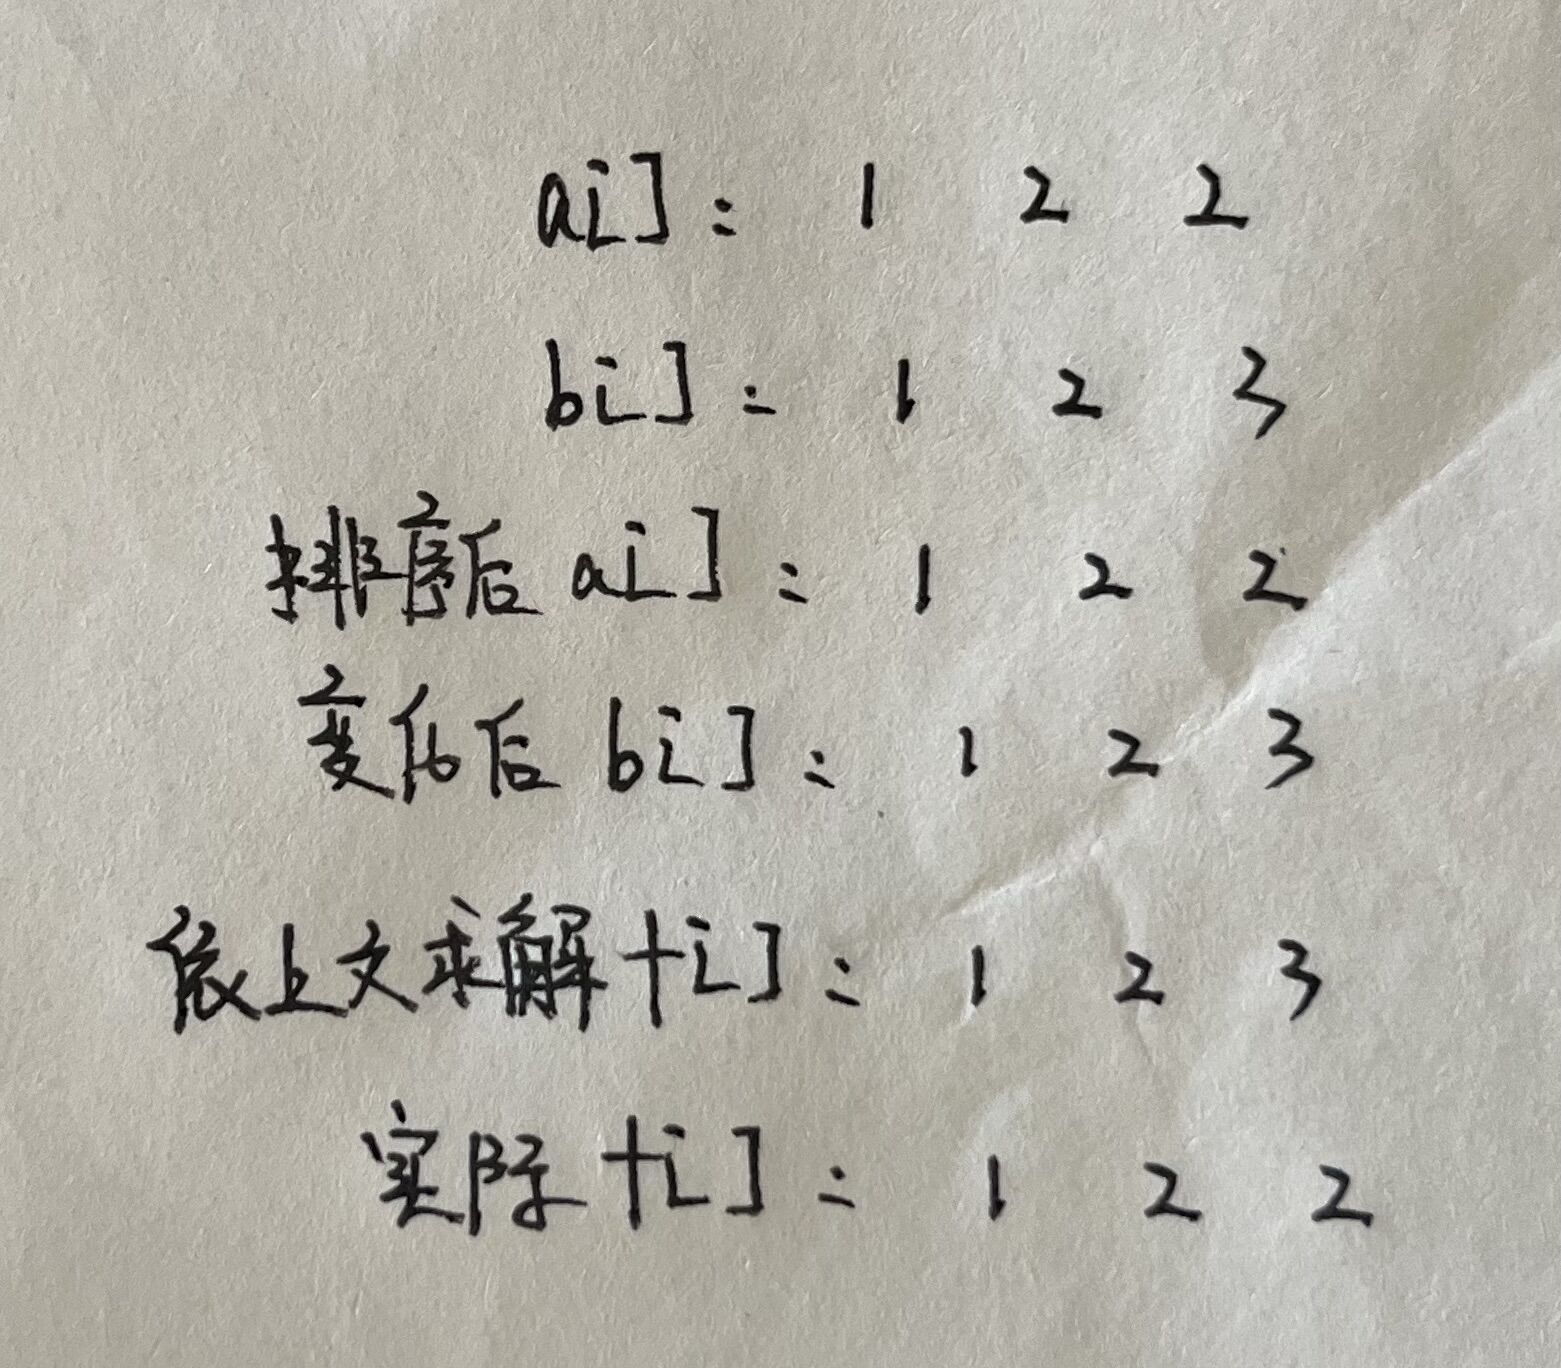 a[]: 1 2 2
b[]: 1 2 3
排序后 a[]: 1 2 2
变化后 b[]: 1 2 3
依上文求解 t[]: 1 2 3
实际 t[]: 1 2 2